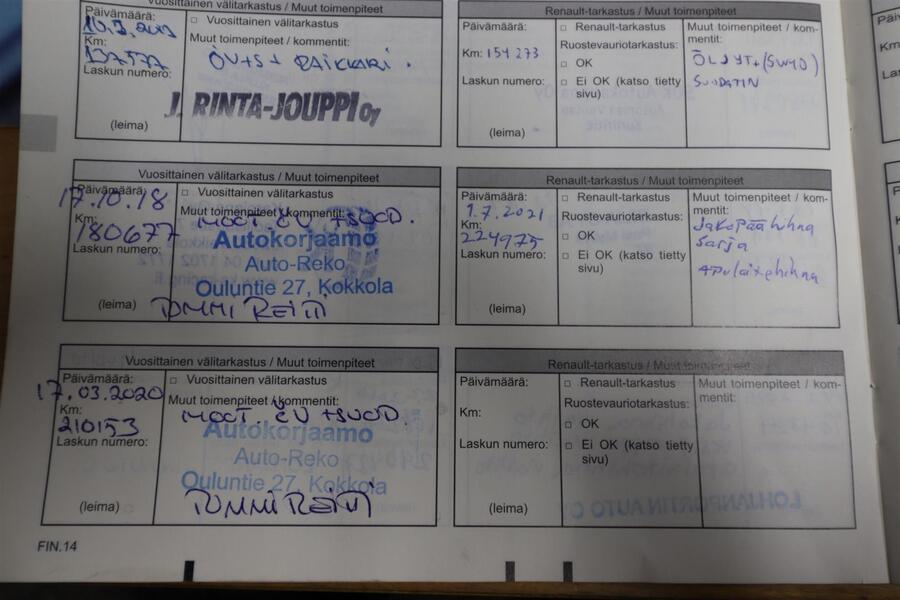 Vuosittainen välitarkastus / Muut toimenpiteet
Päivämäärä:
□ Vuosittainen välitarkastus
Km:
137577
Muut toimenpiteet / kommentit:
ÖV+S+ RAIKKARI.
Laskun numero:
J. RINTA-JOUPPI OY
(leima)
Renault-tarkastus / Muut toimenpiteet
Päivämäärä:
□ Renault-tarkastus
Ruostevauriotarkastus:
□ OK
□ Ei OK (katso tietty sivu)
Muut toimenpiteet / kommentit:
ÖLJYT+(5W40)
SUODATIN
Km: 154 273
Laskun numero:
(leima)
Vuosittainen välitarkastus / Muut toimenpiteet
Päivämäärä:
17.10.18
□ Vuosittainen välitarkastus
Km:
180677
Muut toimenpiteet / kommentit:
MOOT. ÖV +SUOD.
Laskun numero:
Autokorjaamo
Auto-Reko
Ouluntie 27, Kokkola
(leima)
TOMMI REITI
Renault-tarkastus / Muut toimenpiteet
Päivämäärä:
1.7.2021
□ Renault-tarkastus
Km:
224975
Ruostevauriotarkastus:
□ OK
□ Ei OK (katso tietty sivu)
Muut toimenpiteet / kommentit:
Jakopää hihna
sarja
apulaitehihna
Laskun numero:
(leima)
Vuosittainen välitarkastus / Muut toimenpiteet
Päivämäärä:
17.03.2020
□ Vuosittainen välitarkastus
Km:
210153
Muut toimenpiteet / kommentit:
MOOT. ÖV +SUOD
Laskun numero:
Autokorjaamo
Auto-Reko
Ouluntie 27, Kokkola
(leima)
TOMMI REITI
Renault-tarkastus / Muut toimenpiteet
Päivämäärä:
□ Renault-tarkastus
Km:
Ruostevauriotarkastus:
□ OK
□ Ei OK (katso tietty sivu)
Muut toimenpiteet / kommentit:
Laskun numero:
(leima)
FIN.14